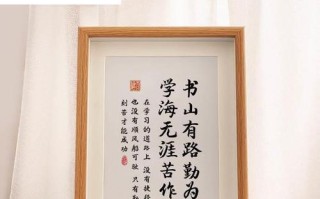 书山有路勤为
学海无涯苦作
在学习的道路上 没有捷
也没有顺风船可驶 只有
刻苦才能成功